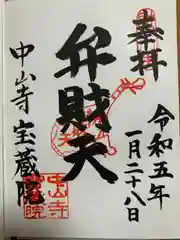 奉拝
令和五年
一月二十八日
弁財天
中山寺宝蔵院
中山寺